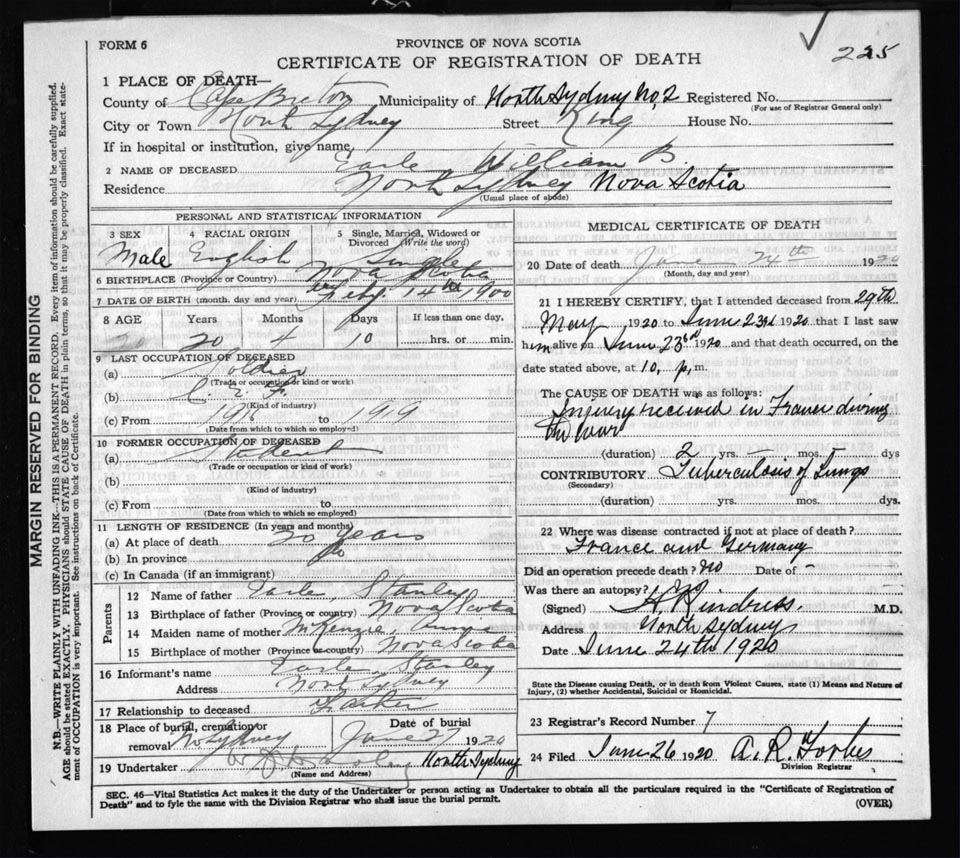 FORM 6
PROVINCE OF NOVA SCOTIA
225
CERTIFICATE OF REGISTRATION OF DEATH
1 PLACE OF DEATH—
County of Cape Breton Municipality of North Sydney No. 2 Registered No.
(For use of Registrar General only)
City or Town North Sydney Street King House No.
If in hospital or institution, give name
2 NAME OF DECEASED Earle William B.
Residence North Sydney Nova Scotia
(Usual place of abode)
PERSONAL AND STATISTICAL INFORMATION
3 SEX 4 RACIAL ORIGIN 5 Single, Married, Widowed or Divorced (Write the word)
Male English Single
6 BIRTHPLACE (Province or Country) Nova Scotia
7 DATE OF BIRTH (month, day and year) Feby. 14th 1900
8 AGE Years Months Days If less than one day,
20 4 10 hrs. or min.
9 LAST OCCUPATION OF DECEASED
(a) Soldier
(Trade or occupation or kind of work)
(b) C. E. F.
(Kind of industry)
(c) From to 1919
(Date from which to which so employed)
10 FORMER OCCUPATION OF DECEASED
(a) Student
(Trade or occupation or kind of work)
(b)
(Kind of industry)
(c) From to
(Date from which to which so employed)
11 LENGTH OF RESIDENCE (In years and months)
(a) At place of death 20 years
(b) In province Do
(c) In Canada (if an immigrant)
Parents
12 Name of father Earle, Stanley
13 Birthplace of father (Province or country) Nova Scotia
14 Maiden name of mother McKenzie, Anna
15 Birthplace of mother (Province or country) Nova Scotia
16 Informant's name Earle Stanley
Address North Sydney
17 Relationship to deceased Father
18 Place of burial, cremation or Date of burial
removal No. Sydney June 27 1920
19 Undertaker North Sydney
(Name and Address)
MEDICAL CERTIFICATE OF DEATH
20 Date of death June 24th 1920
(Month, day and year)
21 I HEREBY CERTIFY, that I attended deceased from 29th
May 1920 to June 23rd 1920 that I last saw
him alive on June 23rd 1920 and that death occurred, on the
date stated above, at 10, p, m.
The CAUSE OF DEATH was as follows:
Injury received in France during
the war
(duration) 2 yrs. — mos. days
CONTRIBUTORY Tuberculosis of Lungs
(Secondary)
(duration) yrs. mos. dys.
22 Where was disease contracted if not at place of death?
France and Germany
Did an operation precede death? No Date of -
Was there an autopsy? No
(Signed) H. Rindress. M.D.
Address North Sydney
Date June 24th 1920
State the Disease causing Death, or in death from Violent Causes, state (1) Means and Nature of
Injury, (2) whether Accidental, Suicidal or Homicidal.
23 Registrar's Record Number 7
24 Filed June 26 1920 A. R. Forbes
Division Registrar
SEC. 46—Vital Statistics Act makes it the duty of the Undertaker or person acting as Undertaker to obtain all the particulars required in the "Certificate of Registration of
Death" and to fyle the same with the Division Registrar who shall issue the burial permit.
(OVER)
MARGIN RESERVED FOR BINDING
N.B.—WRITE PLAINLY WITH UNFADING INK—THIS IS A PERMANENT RECORD. Every item of information should be carefully supplied.
AGE should be stated EXACTLY. PHYSICIANS should STATE CAUSE OF DEATH in plain terms, so that it may be properly classified. Exact state-
ment of OCCUPATION is very important. See instructions on back of Certificate.